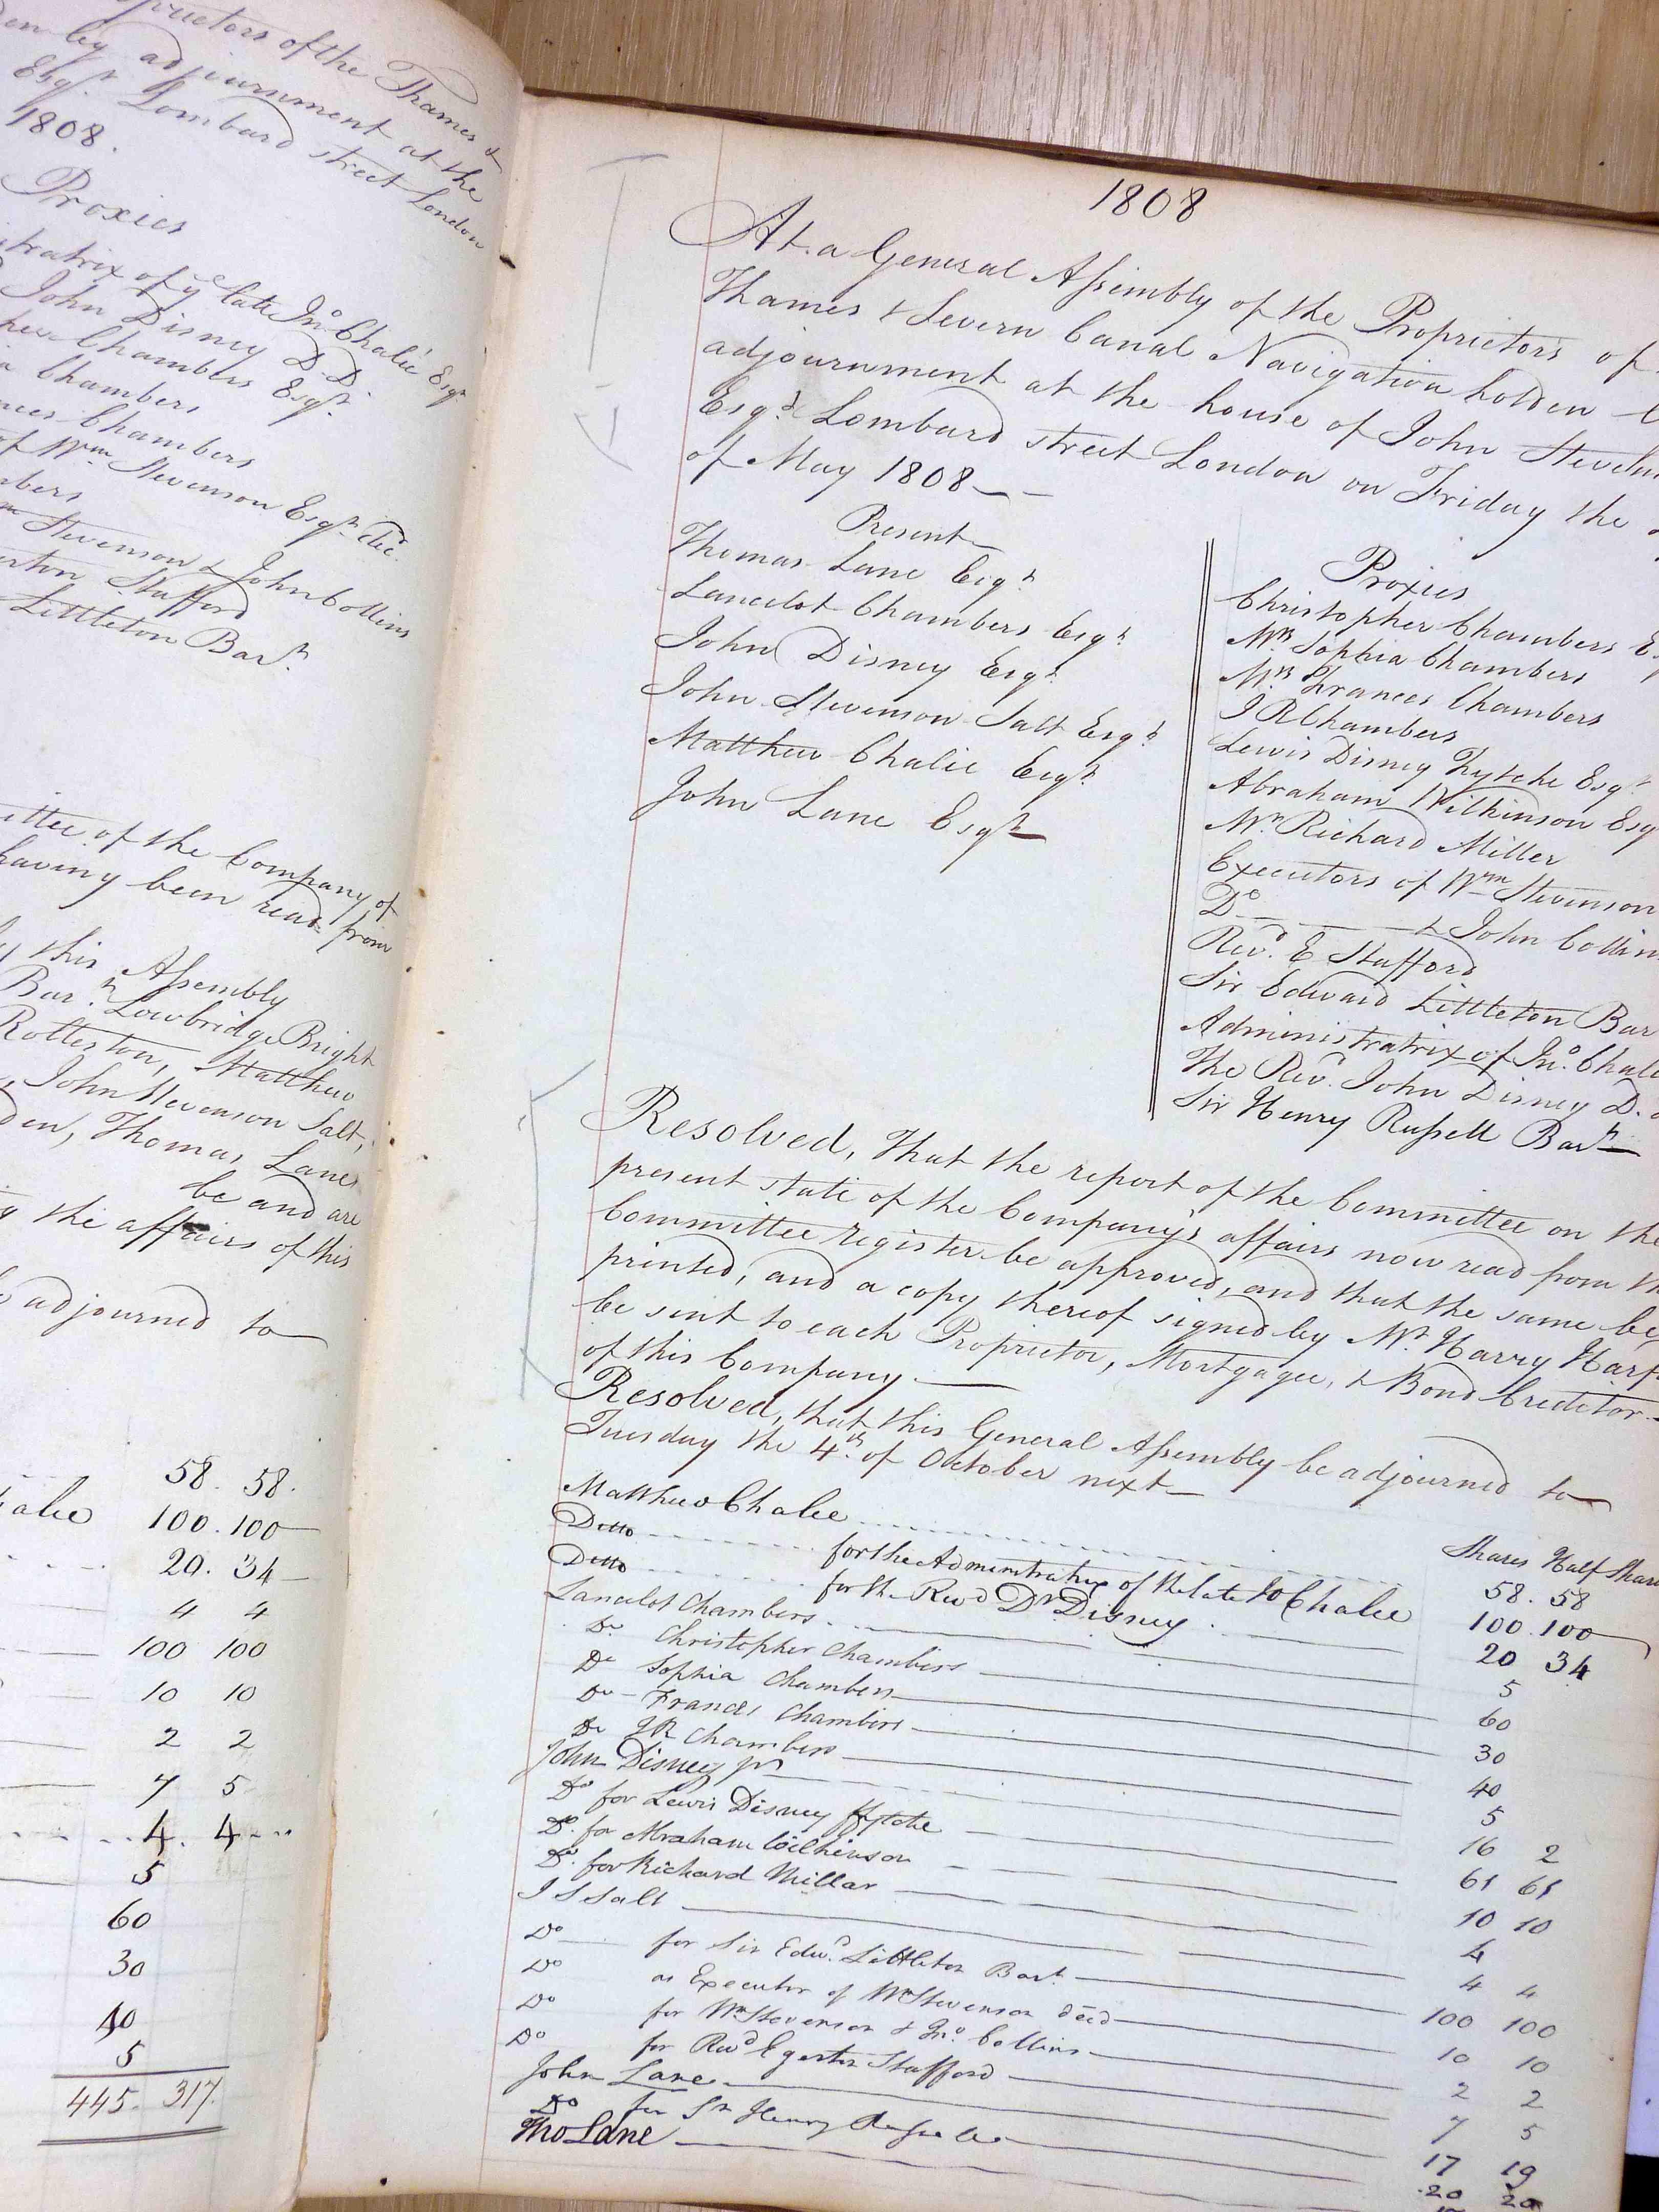 prietors of the Thames &
den by adjournment at the
Esqr. Lombard street London
1808.
Proxies
istratrix of ye late Jno. Chalié Esqr
John Disney D.D.
her Chambers Esqr.
a Chambers
nces Chambers
of Wm Stevenson Esqr. dec.
mbers
m Stevenson & John Collins
erton Stafford
Littleton Bart.
ittee of the Company of
having been read from
y this Assembly
Bart. Lowbridge Bright
Rolleston, Matthew
, John Stevenson Salt,
den, Thomas Lane
be and are
g the affairs of this
adjourned to
58. 58.
alie 100. 100
20. 34
4 4
100 100
10 10
2 2
7 5
4. 4
5
60
30
40
5
445. 317.
1808
At a General Assembly of the Proprietors of
Thames & Severn Canal Navigation holden
adjournment at the house of John Steven
Esqr. Lombard street London on Friday the
of May 1808
Present
Thomas Lane Esqr
Lancelot Chambers Esqr
John Disney Esqr
John Stevenson Salt Esqr
Matthew Chalie Esqr
John Lane Esqr
Proxies
Christopher Chambers E
Mrs Sophia Chambers
Mrs Frances Chambers
J R Chambers
Lewis Disney Fytche Esqr
Abraham Wilkinson Esq
Mr Richard Miller
Executors of Wm Stevenson
Do & John Collin
Revd. E Stafford
Sir Edward Littleton Bar
Administratrix of Jno. Chali
The Revd. John Disney D.
Sir Henry Russell Bart
Resolved, That the report of the Committee on the
present state of the Company's affairs now read from th
Committee register be approved, and that the same be
printed, and a copy thereof signed by Mr. Harry Harf
be sent to each Proprietor, Mortgagee, & Bond Creditor
of this Company
Resolved, that this General Assembly be adjourned to
Tuesday the 4th. of October next
Shares Half Shar
Matthew Chalie 58. 58
Ditto for the Administratrix of the late Jo Chalie 100. 100
Ditto for the Revd Dr Disney 20 34
Lancelot Chambers 5
Do Christopher Chambers 60
Do Sophia Chambers 30
Do Frances Chambers 40
Do JR Chambers 5
John Disney jr 16 2
Do for Lewis Disney ffytche 61 61
Do. for Abraham Wilkinson 10 10
Do. for Richard Millar 4
J S Salt 4 4
Do for Sir Edwd. Littleton Bart. 100 100
Do as Executor of Wm Stevenson decd 10 10
Do for Wm Stevenson & Jno. Collins 2 2
Do for Revd Egerton Stafford 7 5
John Lane 17 19
Do for Sr Henry Russell 20 20
Tho Lane